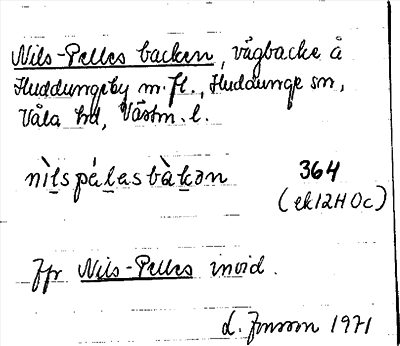 Nils-Pelles backen, vägbacke å
Huddungeby m.fl., Huddunge sn,
Våla hd, Västm. l.
nìlspélasbàkən 364
(ek12H0c)
Jfr Nils-Pelles invid.
L. Jonson 1971